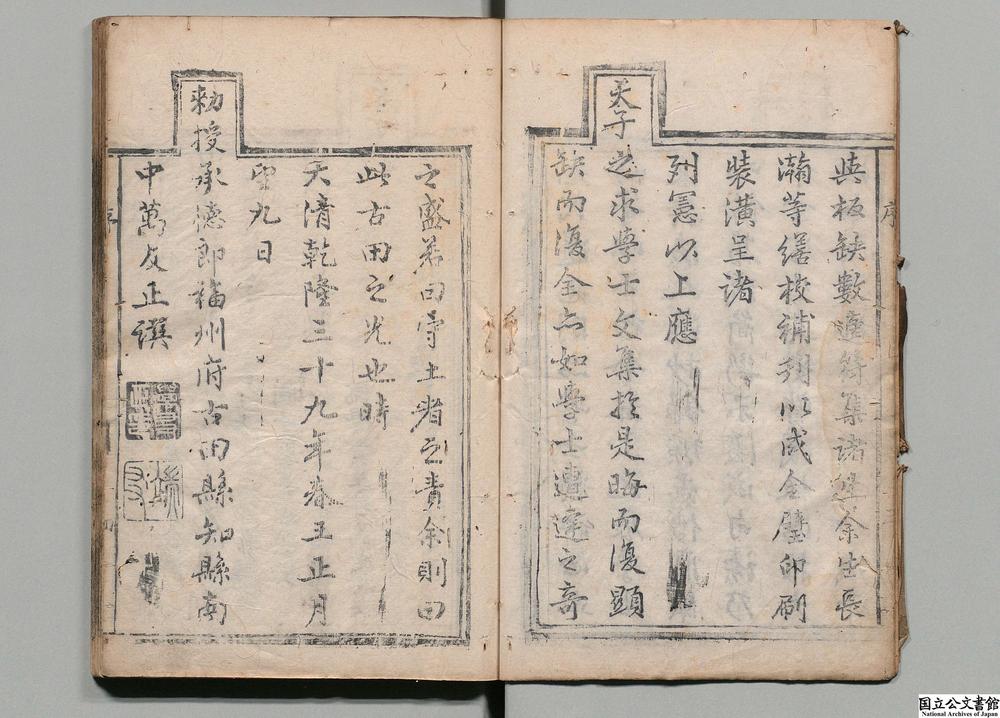 序
與板缺數遂
集諸
余生長
瀚等繕校補刋以成全璧印刷
裝潢呈諸
列憲以上應
天子
求學士文集於是晦而復顯
缺而復全亦如學士遭逢之奇
之盛若曰守土者之責余則曰
此古田之光也時
大清乾隆三十九年春王正月
九日
勅授承德郎福州府古田縣知縣南
中萬友正譔
國立公文書館
National Archives of Japan